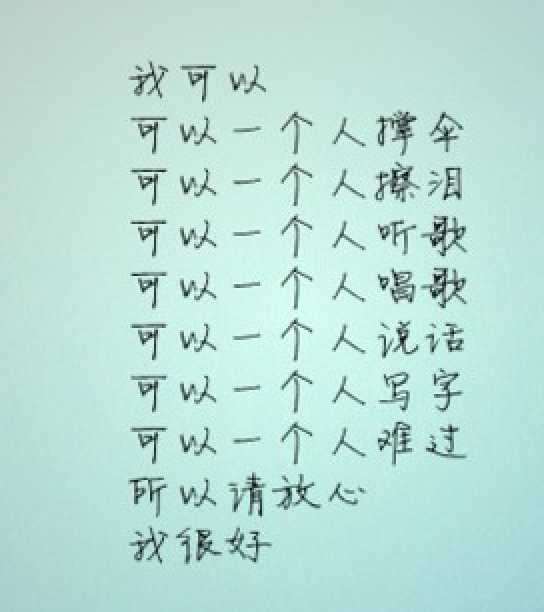 我可以
可以一个人撑伞
可以一个人擦泪
可以一个人听歌
可以一个人唱歌
可以一个人说话
可以一个人写字
可以一个人难过
所以请放心
我很好